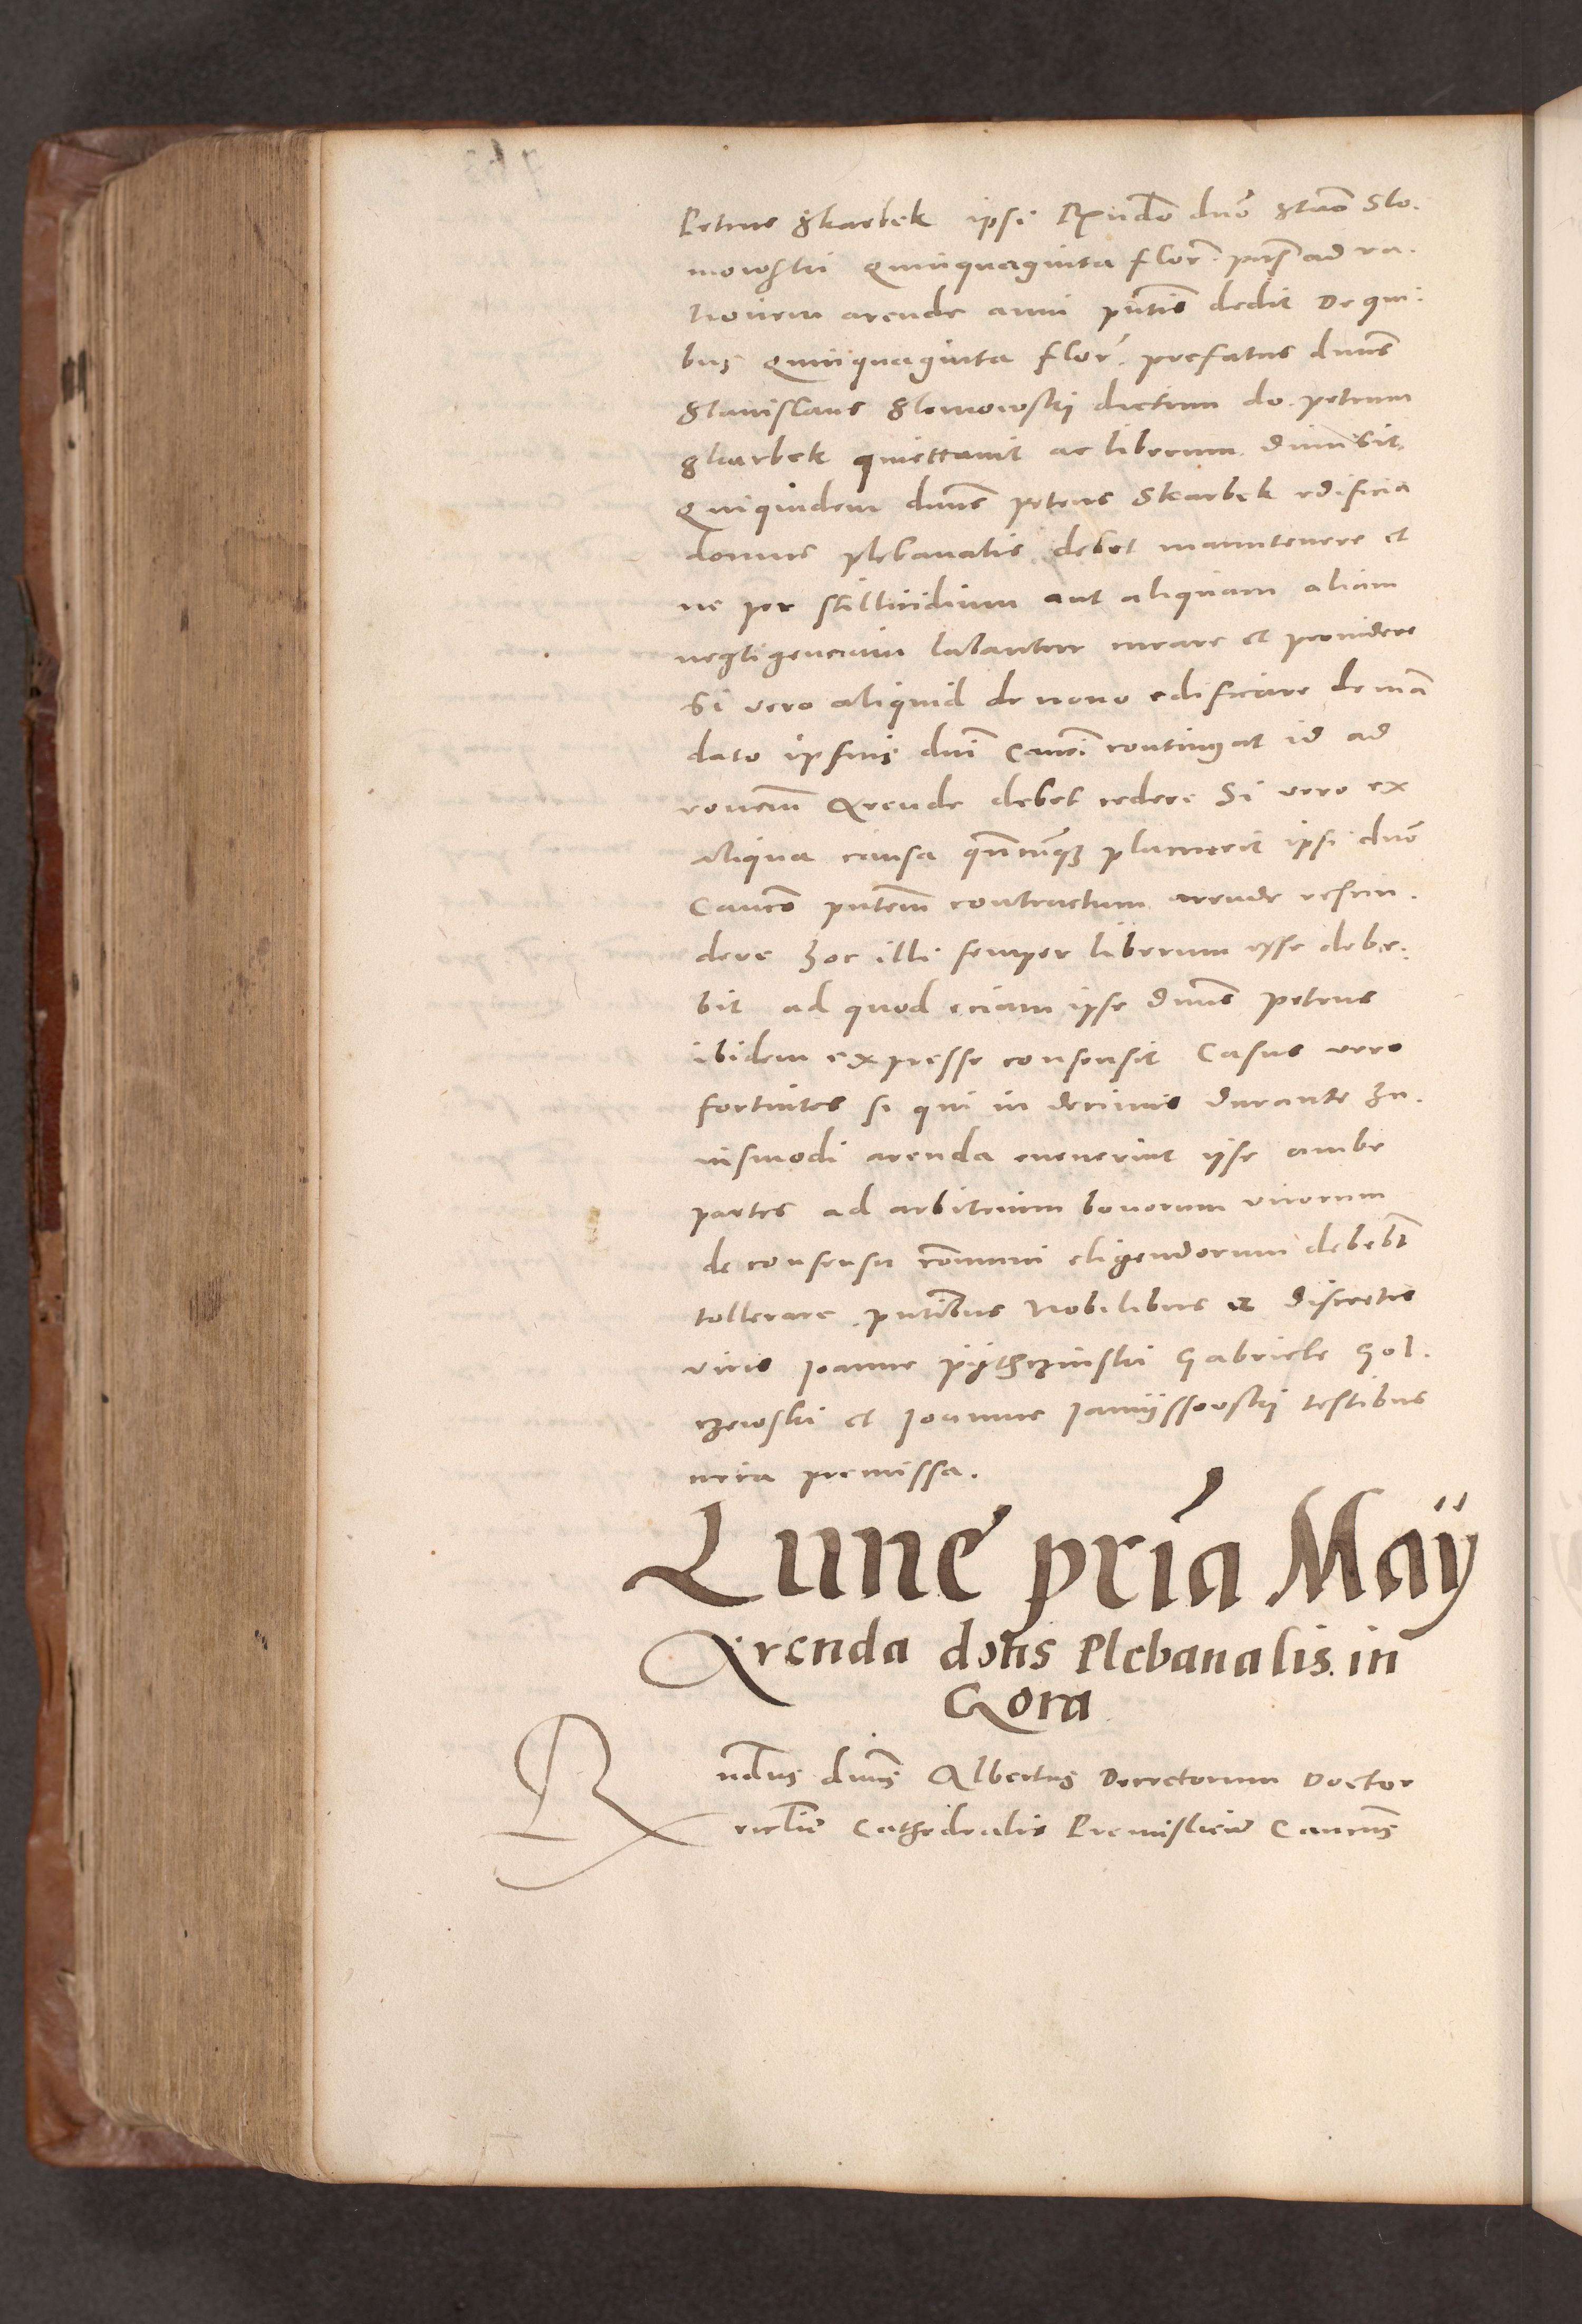 Petrus Skarbek ipsi Rndo dno Stao Slo.
mowski quinquaginta flor. ad ra.
tionem arende anni pntis dedit De qui.
bus quinquaginta flor. prefatus dnus
Stanislaus Slomowskij dictum do. petrum
Skarbek quiettauit ac liberum dimisit
Quiquidem dnus petrus Skarbek edificia
domus plebanalis debet manutenere et
ne per stillicidium aut aliquam aliam
negligenciam labantur curare et prouidere
Si vero aliquid de nouo edificare de man
dato ipsius dni Canci contingat id ad
ronem Arende debet cedere Si vero ex
aliqua causa qncunq placuerit ipsi dno
Canco pntem contractum arende rescin.
dere hoc illi semper liberum esse debe.
bit ad quod eciam ipse dnus petrus
ibidem expresse consensit Casus vero
fortuitos si qui in decimis durante hu.
iusmodi arenda euenerint ipse ambe
partes ad arbitrium bonorum virorum
de consensu comuni eligendorum debebt
tollerare pntibus Nobilibus et discretis
viris Joanne pijthczinski Gabriele Gol.
czewski et Joanne Janijssowskij testibus
circa premissa.
Lune pria Maij
Arenda dotis Plebanalis in
Gora
Rndus dnus Albertus Decretorum Doctor
eccliae Cathedralis Premislien Cancus